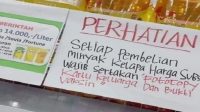 MERINTAH
14.000,-/Liter
PERHATIAN
Setiap Pembelian
Minyak Kelapa Harga Sub
Wajib Sertakan Fotocopy
Kartu Keluarga Dan Bukti
Vaksin